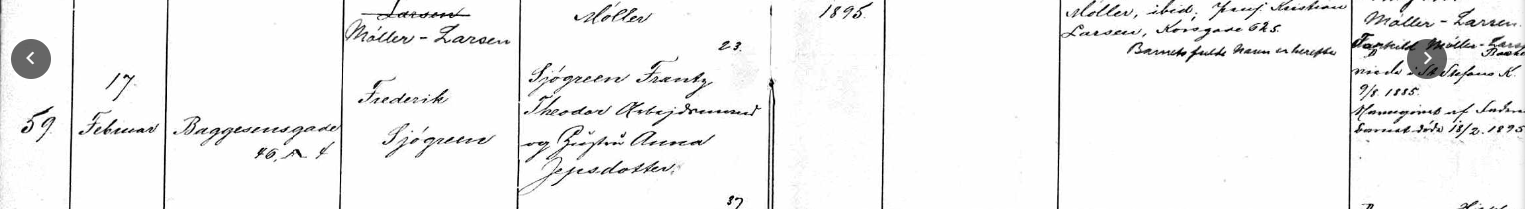 Larsen
Möller - Larsen
Möller
23.
1895.
Möller, ibid; Kristian
Larsen, Korsgade 62 5.
Barnets fulde Navn er herefter
Möller - Larsen.
Möller - Larsen
viede i St Stefans K.
9/8 1885.
af
Barnet døde 18/2 1895
59.
17
Februar
Baggesensgade
46, A 4
Frederik
Sjögreen
Sjögreen Frantz
Theodor Arbejdsmand
og Hustru Anna
Jepsdotter.
37